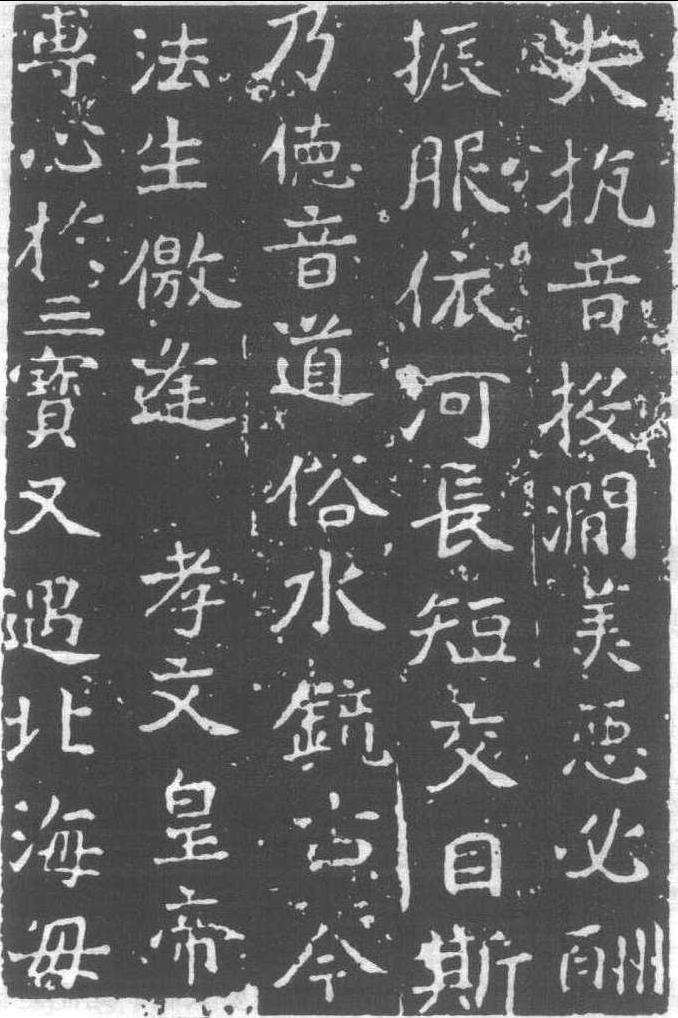 夫抗音投澗美惡必酬
振服依河長短交目斯
乃德音道俗水鏡古今
法生儌逢　孝文皇帝
專心於三寶又遇北海母